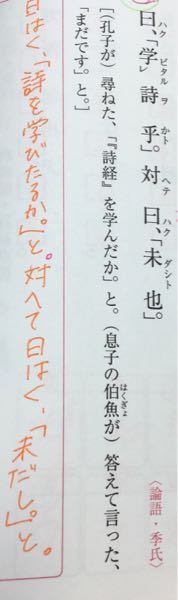 曰ハク、「学ビタルレ詩ヲ乎かト。」対ヘテ曰ハク、「未ダシト也。」
〈論語・季氏〉
[(孔子が)尋ねた、「『詩経』を学んだか」。と。(息子の伯魚はくぎょが)答えて言った、
「まだです」。と。]
曰はく、「詩を学びたるか。」と。対へて曰はく、「未だし。」と。